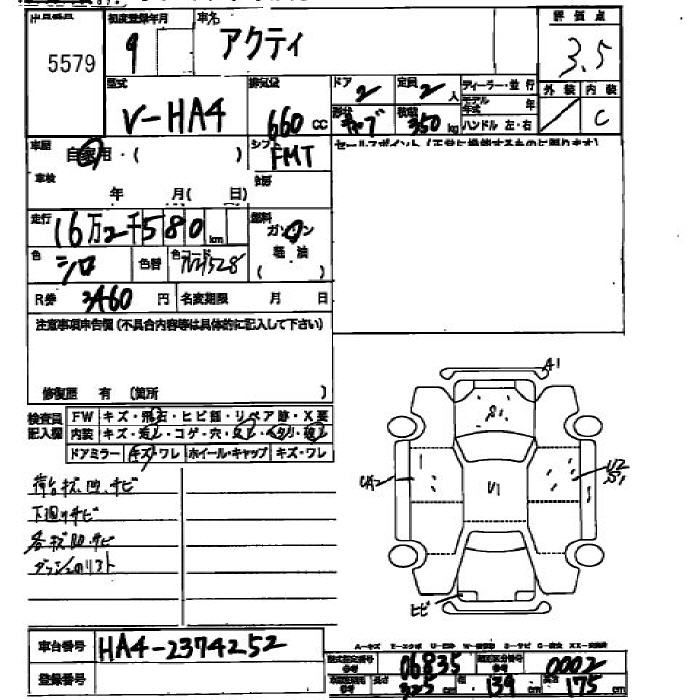 出品番号 初度登録年月 車名 評価点
5579 9 アクティ 3.5
型式 排気量 ドア 2 定員 2人 ディーラー・並行 外装 内装
V-HA4 660cc 形状 積載 350kg モデル年式 年 C
ハンドル 左・右
車歴 自家用・( ) シフト FMT セールスポイント(正常に機能するものに限ります)
車検 年 月(日) 冷房
走行 16万2千580km 燃料 ガソリン
軽油
( )
色 シロ 色替 色コード
R券 3460円 名変期限 月 日
注意事項申告欄(不具合内容等は具体的に記入して下さい)
修復歴 有 (箇所 )
検査員記入欄 FW キズ・飛石・ヒビ割・リペア跡・X要
内装 キズ・汚れ・コゲ・穴・
ドアミラー キズ・ワレ ホイール・キャップ キズ・ワレ
荷台キズ、凹、サビ
下廻りサビ
各キズ凹、サビ
A1
S1
UA2
U1
U2
S1
ヒビ
車台番号 HA4-2374252
登録番号
型式指定番号 06835 類別区分番号 0002
長さ 325cm 幅 139cm 高さ 175cm